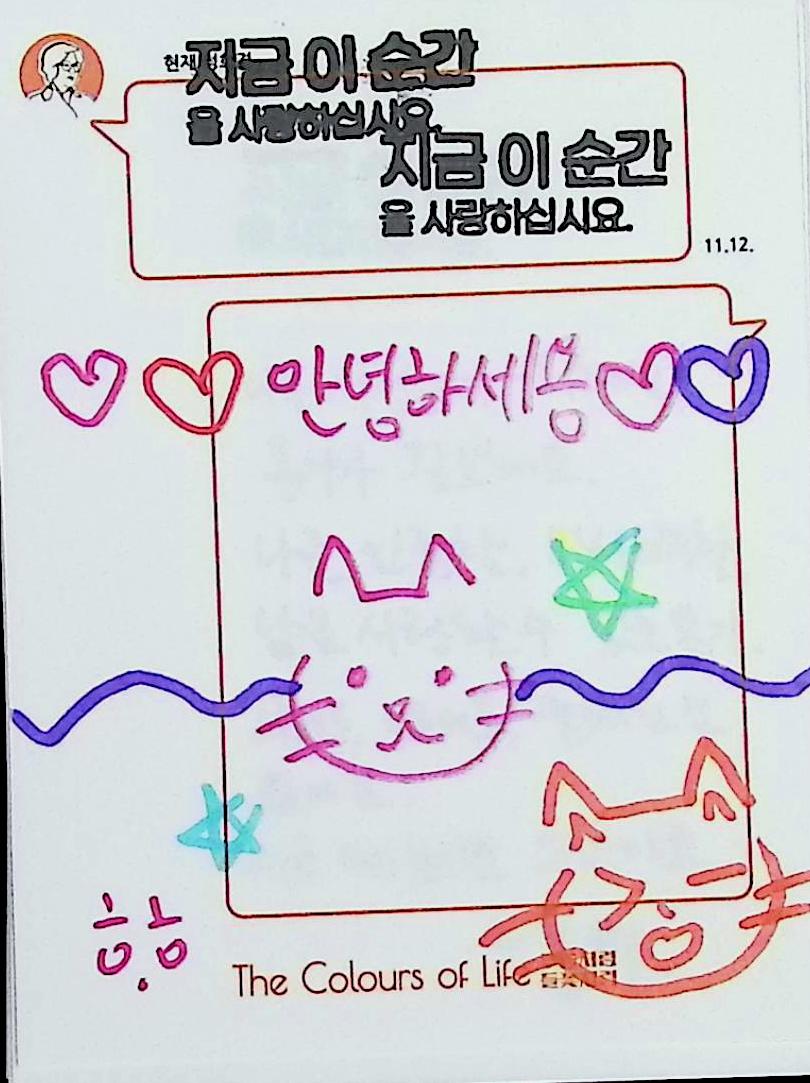 지금 이 순간
을 사랑하십시요.
지금 이 순간
을 사랑하십시요.
11.12.
안녕하세용
The Colours of Life